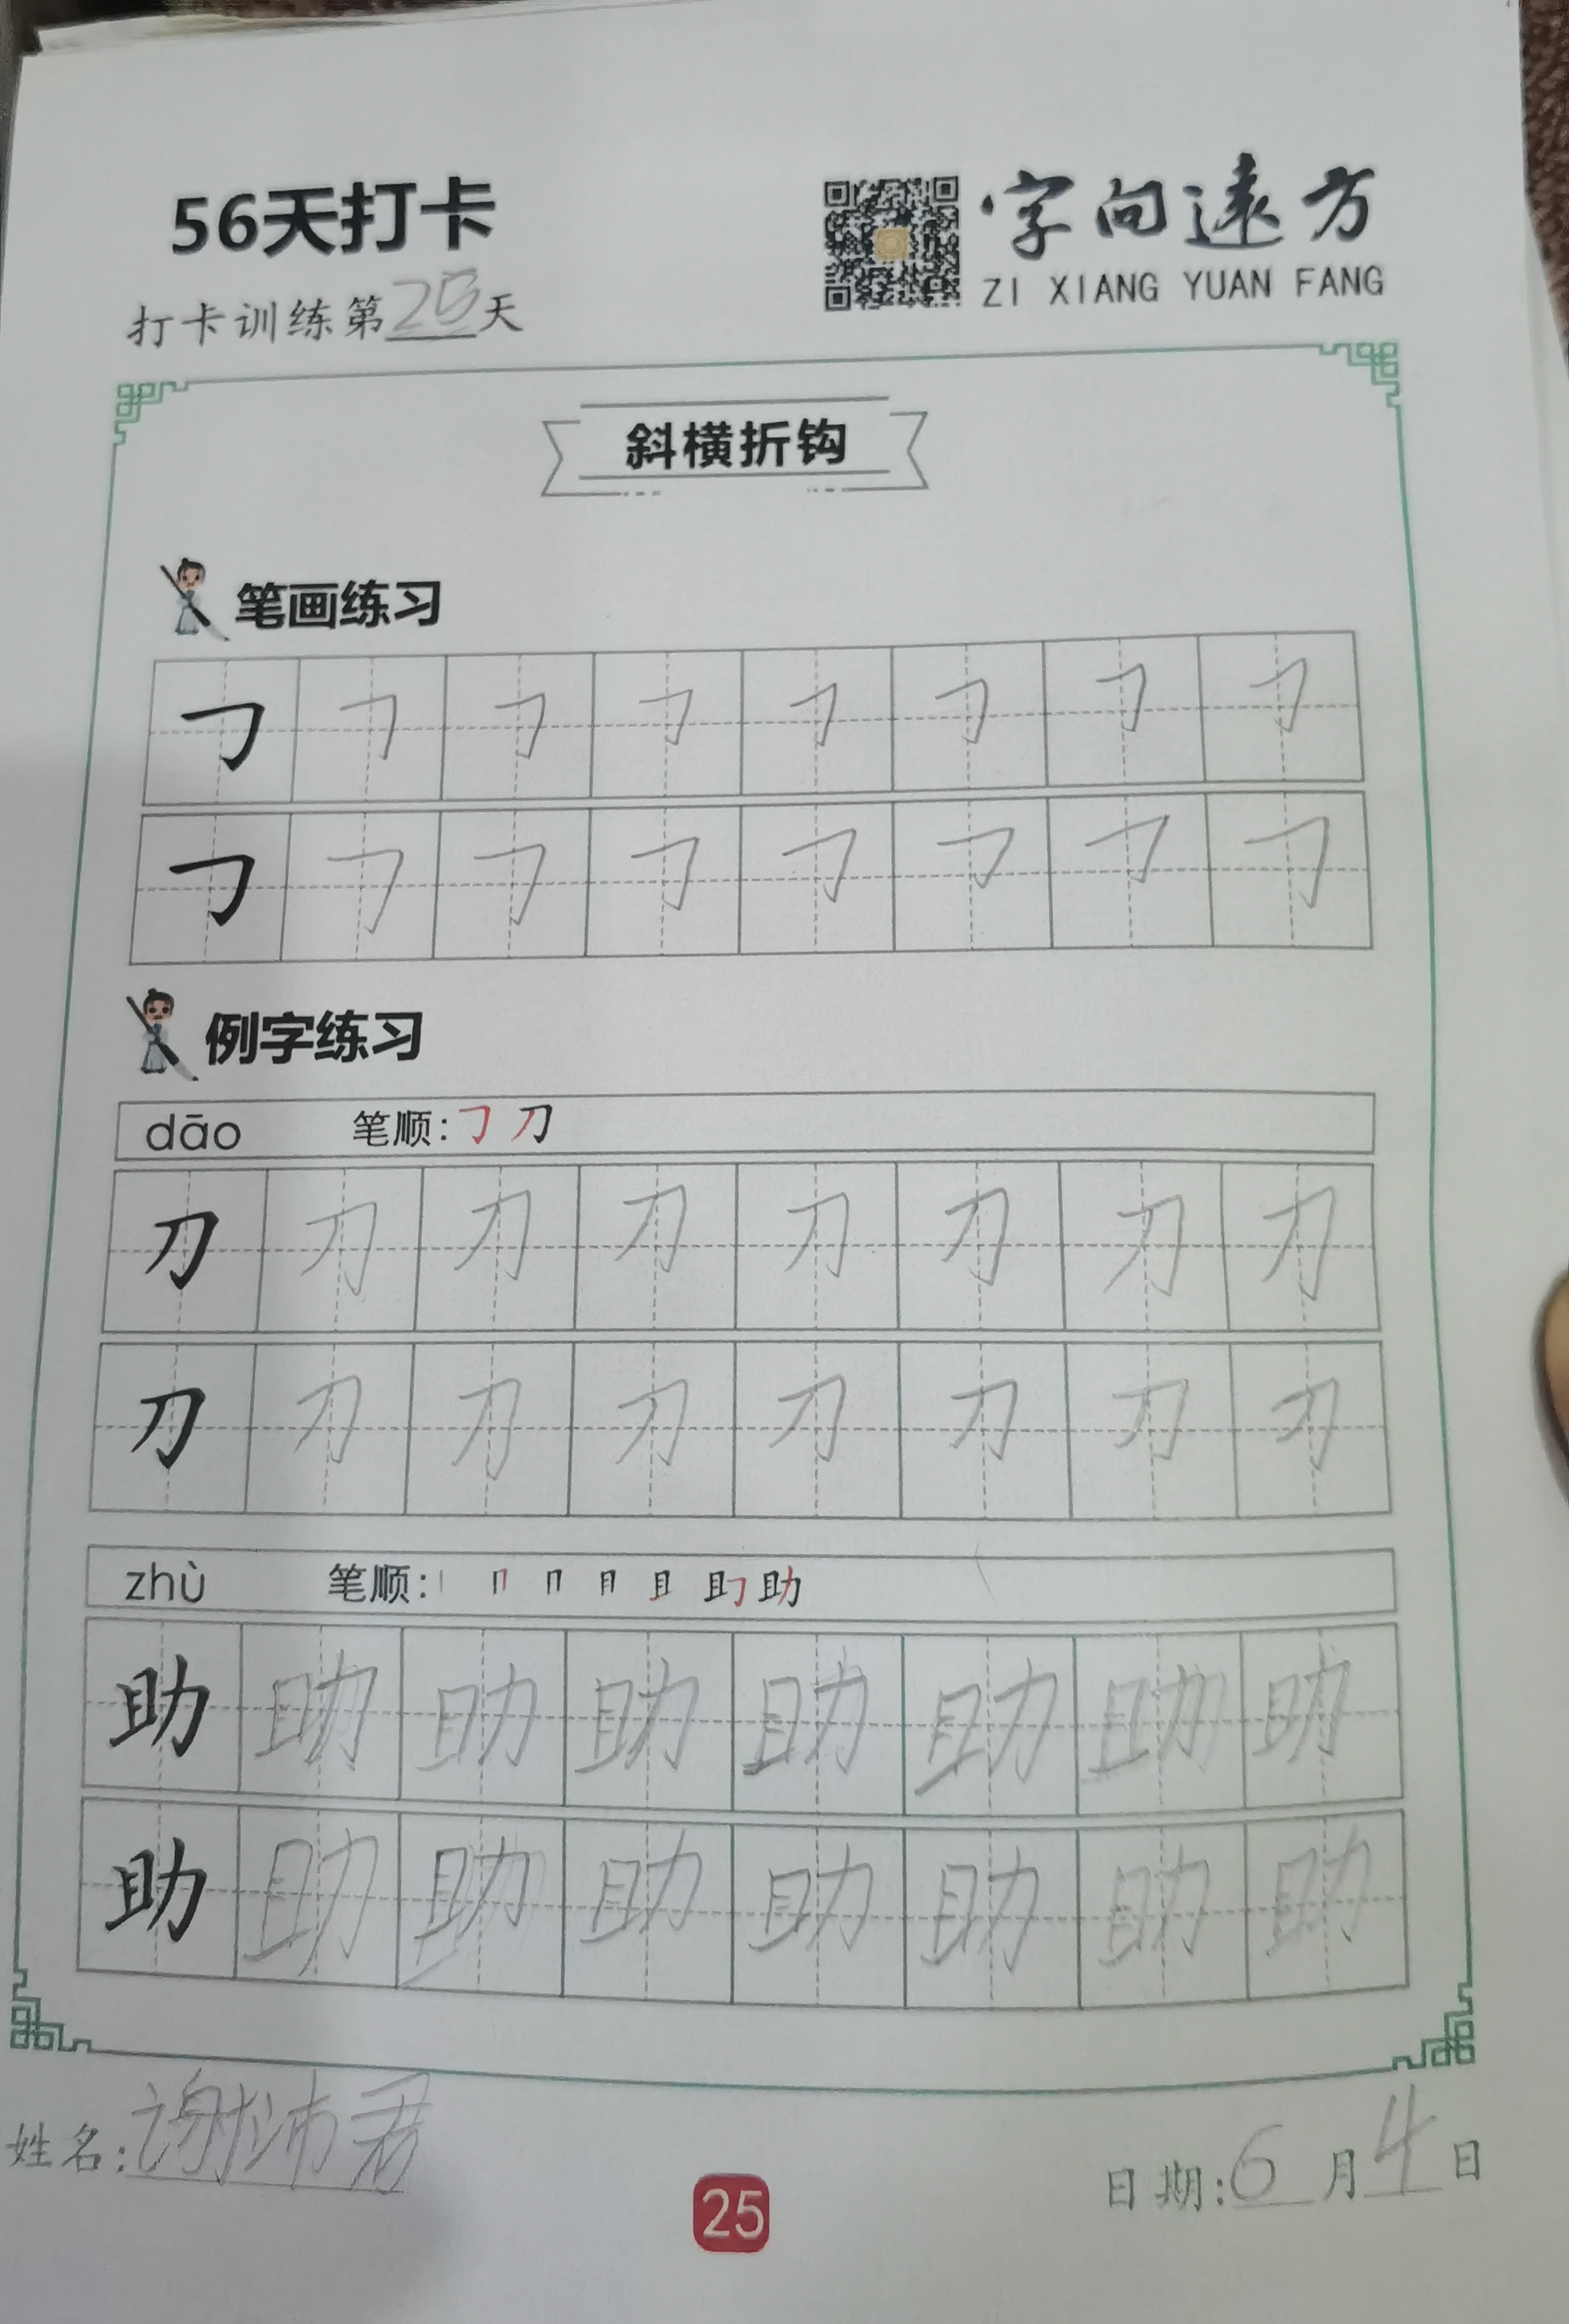 56天打卡
字向遠方
ZI XIANG YUAN FANG
打卡训练第25天
斜横折钩
笔画练习
㇆ ㇆ ㇆ ㇆ ㇆ ㇆ ㇆ ㇆
㇆ ㇆ ㇆ ㇆ ㇆ ㇆ ㇆ ㇆
例字练习
dāo 笔顺: ㇆ 刀
刀 刀 刀 刀 刀 刀 刀 刀
刀 刀 刀 刀 刀 刀 刀 刀
zhù 笔顺: 丨 冂 冂 月 且 助
助 助 助 助 助 助 助 助
助 助 助 助 助 助 助 助
姓名:谢沛君
日期:6月4日
25